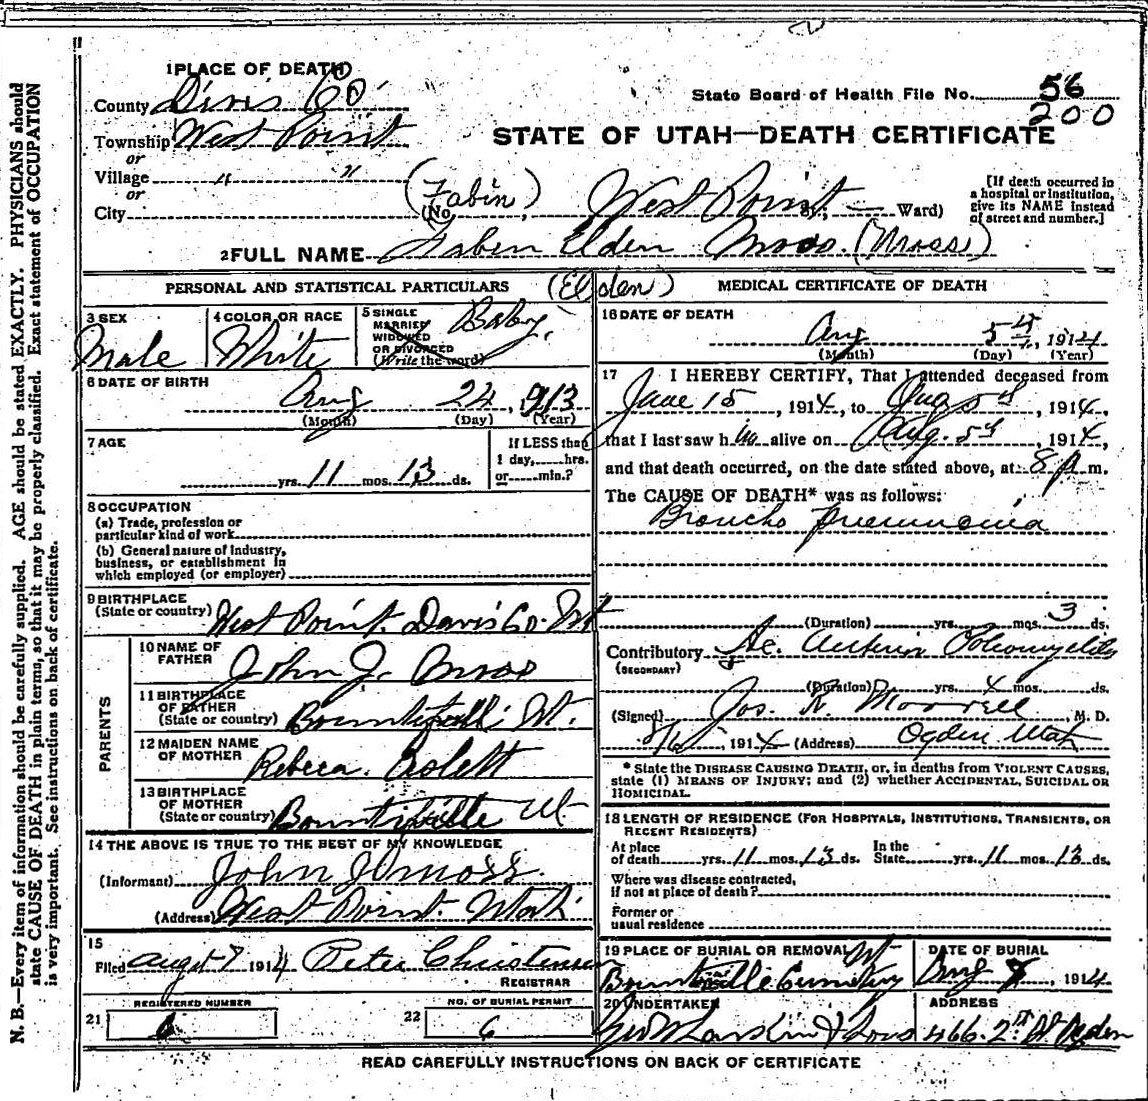 1 PLACE OF DEATH
County Davis Co.
State Board of Health File No. 56
200
Township West Point
STATE OF UTAH—DEATH CERTIFICATE
or
Village " "
or
City (No. West Point St., — Ward)
(Fabin)
[If death occurred in a hospital or institution, give its NAME instead of street and number.]
2 FULL NAME Faben Elden Moss. (Moss)
(Elden)
PERSONAL AND STATISTICAL PARTICULARS
3 SEX
Male
4 COLOR OR RACE
White
5 SINGLE
MARRIED
WIDOWED
OR DIVORCED
(Write the word)
Baby.
6 DATE OF BIRTH
Aug 24, 913
(Month) (Day) (Year)
7 AGE
yrs. 11 mos. 13 ds.
If LESS than
1 day, hrs.
or min.?
8 OCCUPATION
(a) Trade, profession or
particular kind of work
(b) General nature of industry,
business, or establishment in
which employed (or employer)
9 BIRTHPLACE
(State or country) West Point. Davis Co. Ut
PARENTS
10 NAME OF
FATHER John J. Moss
11 BIRTHPLACE
OF FATHER
(State or country) Bountiful Ut.
12 MAIDEN NAME
OF MOTHER Rebeca
13 BIRTHPLACE
OF MOTHER
(State or country) Bountiful Ut
14 THE ABOVE IS TRUE TO THE BEST OF MY KNOWLEDGE
(Informant) John J Moss.
(Address) West Point. Utah
15
Filed August 7 1914 Peter Christensen
REGISTRAR
REGISTERED NUMBER
21 6
NO. OF BURIAL PERMIT
22 6
MEDICAL CERTIFICATE OF DEATH
16 DATE OF DEATH
Aug 5th, 1914
(Month) (Day) (Year)
17 I HEREBY CERTIFY, That I attended deceased from
June 15, 1914, to Aug 5th, 1914,
that I last saw him alive on Aug. 5th, 1914,
and that death occurred, on the date stated above, at 8 p m.
The CAUSE OF DEATH* was as follows:
Broncho pneumonia
(Duration) yrs. mos. 3 ds.
Contributory Ac. Anterior Poliomyelitis
(SECONDARY)
(Duration) yrs. 4 mos. ds.
(Signed) Jos. R. Morrell, M. D.
8/6, 1914 (Address) Ogden Utah
* State the DISEASE CAUSING DEATH, or, in deaths from VIOLENT CAUSES, state (1) MEANS OF INJURY; and (2) whether ACCIDENTAL, SUICIDAL OR HOMICIDAL.
18 LENGTH OF RESIDENCE (FOR HOSPITALS, INSTITUTIONS, TRANSIENTS, OR RECENT RESIDENTS)
At place of death yrs. 11 mos. 13 ds. In the State yrs. 11 mos. 13 ds.
Where was disease contracted,
if not at place of death?
Former or
usual residence
19 PLACE OF BURIAL OR REMOVAL
Bountiful Cemetery Ut
DATE OF BURIAL
Aug 7, 1914
20 UNDERTAKER
Geo W Larkin & Sons
ADDRESS
466. 2 St Ogden
READ CAREFULLY INSTRUCTIONS ON BACK OF CERTIFICATE
N. B.—Every item of information should be carefully supplied. AGE should be stated EXACTLY. PHYSICIANS should
state CAUSE OF DEATH in plain terms, so that it may be properly classified. Exact statement of OCCUPATION
is very important. See instructions on back of certificate.